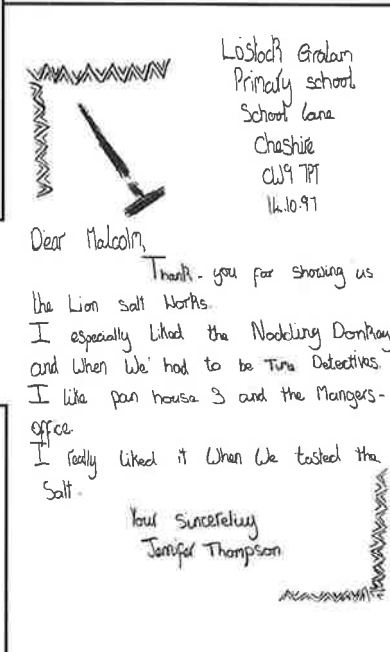 Lostock Gralam
Primary school
School lane
Cheshire
CW9 7PT
14.10.97
Dear Malcolm,
Thank-you for showing us
the Lion salt Works.
I especially Liked the Nodding Donkey
and When We' had to be Time Detectives.
I like pan house 3 and the Mangers-
office.
I really liked it When We tasted the
Salt.
Your Sincereliuy
Jenifer Thompson